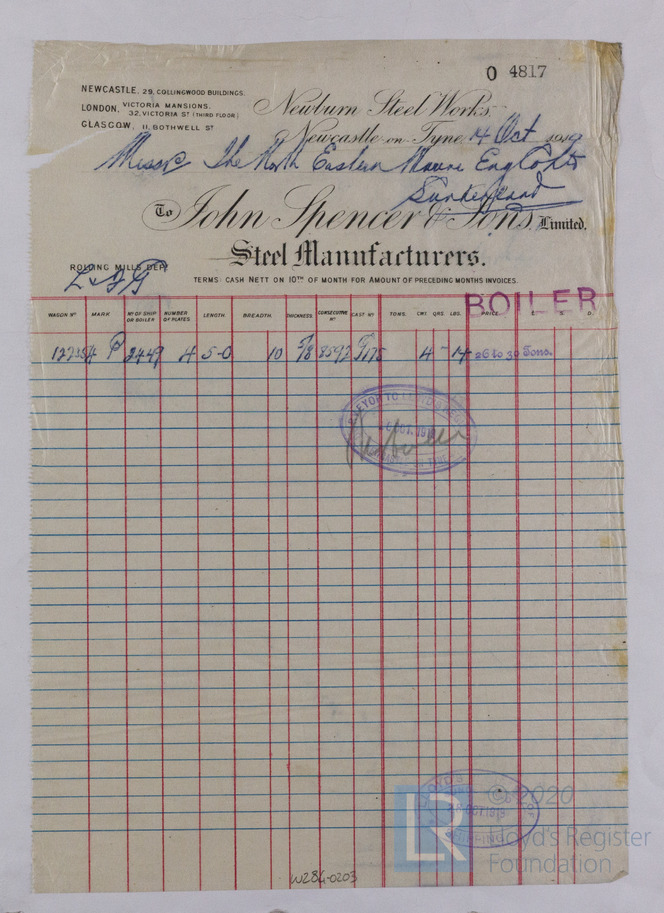 O 4817
NEWCASTLE. 29, COLLINGWOOD BUILDINGS.
LONDON. VICTORIA MANSIONS, 32, VICTORIA ST (THIRD FLOOR)
GLASGOW, 11, BOTHWELL ST
Newburn Steel Works
Newcastle-on-Tyne, 4 Oct 1919
Messrs The North Eastern Marine Eng Co Ltd
Sunderland
To John Spencer & Sons, Limited.
Steel Manufacturers.
ROLLING MILLS DEPT
TERMS: CASH NETT ON 10TH OF MONTH FOR AMOUNT OF PRECEDING MONTHS INVOICES.
BOILER
WAGON Nº MARK Nº OF SHIP OR BOILER NUMBER OF PLATES LENGTH. BREADTH. THICKNESS CONSECUTIVE Nº CAST Nº TONS. CWT. QRS. LBS. PRICE. £. S. D.
P 2449 4 5-0 10 7/8 8592 4 - 14 26 to 30 Tons.
OCT 1919
W284-0203
© 2020
LR Lloyd's Register
Foundation